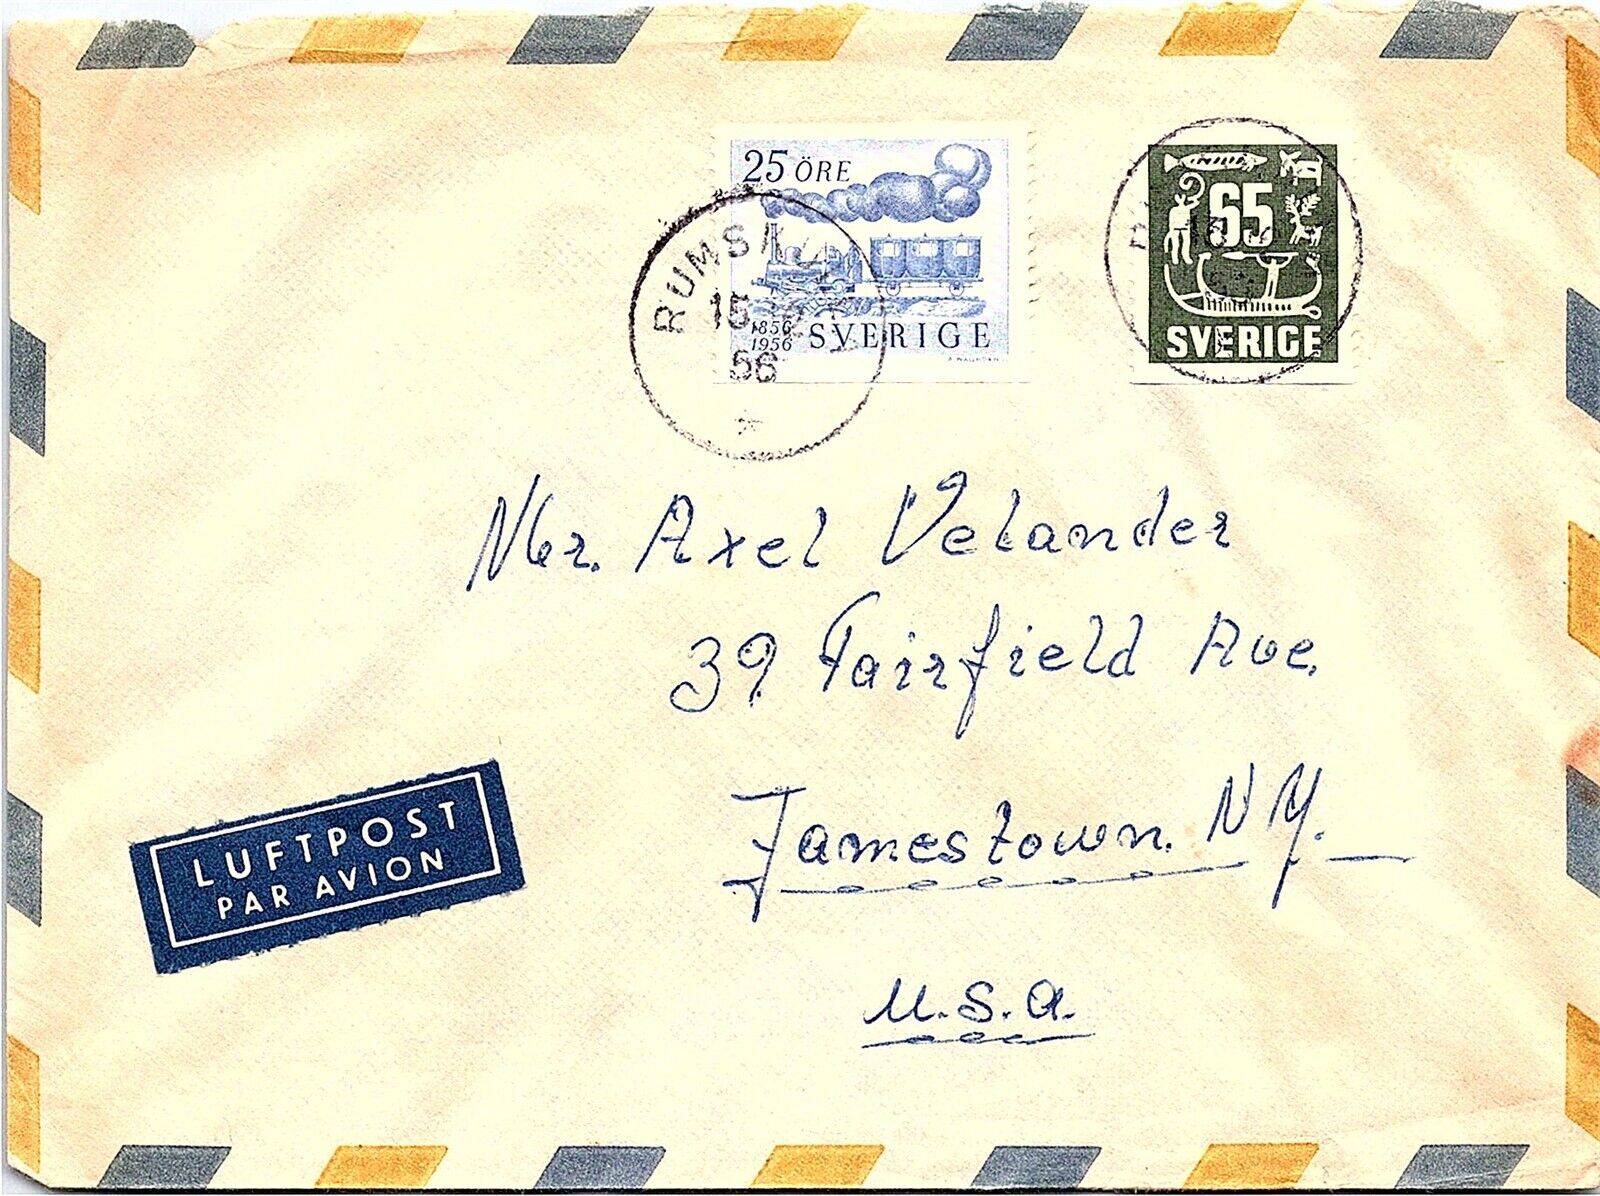 25 ÖRE
1856
1956 SVERIGE
15
56
65
SVERIGE
Mr. Axel Velander
39 Fairfield Ave.
Jamestown. N.Y.
U.S.A.
LUFTPOST
PAR AVION